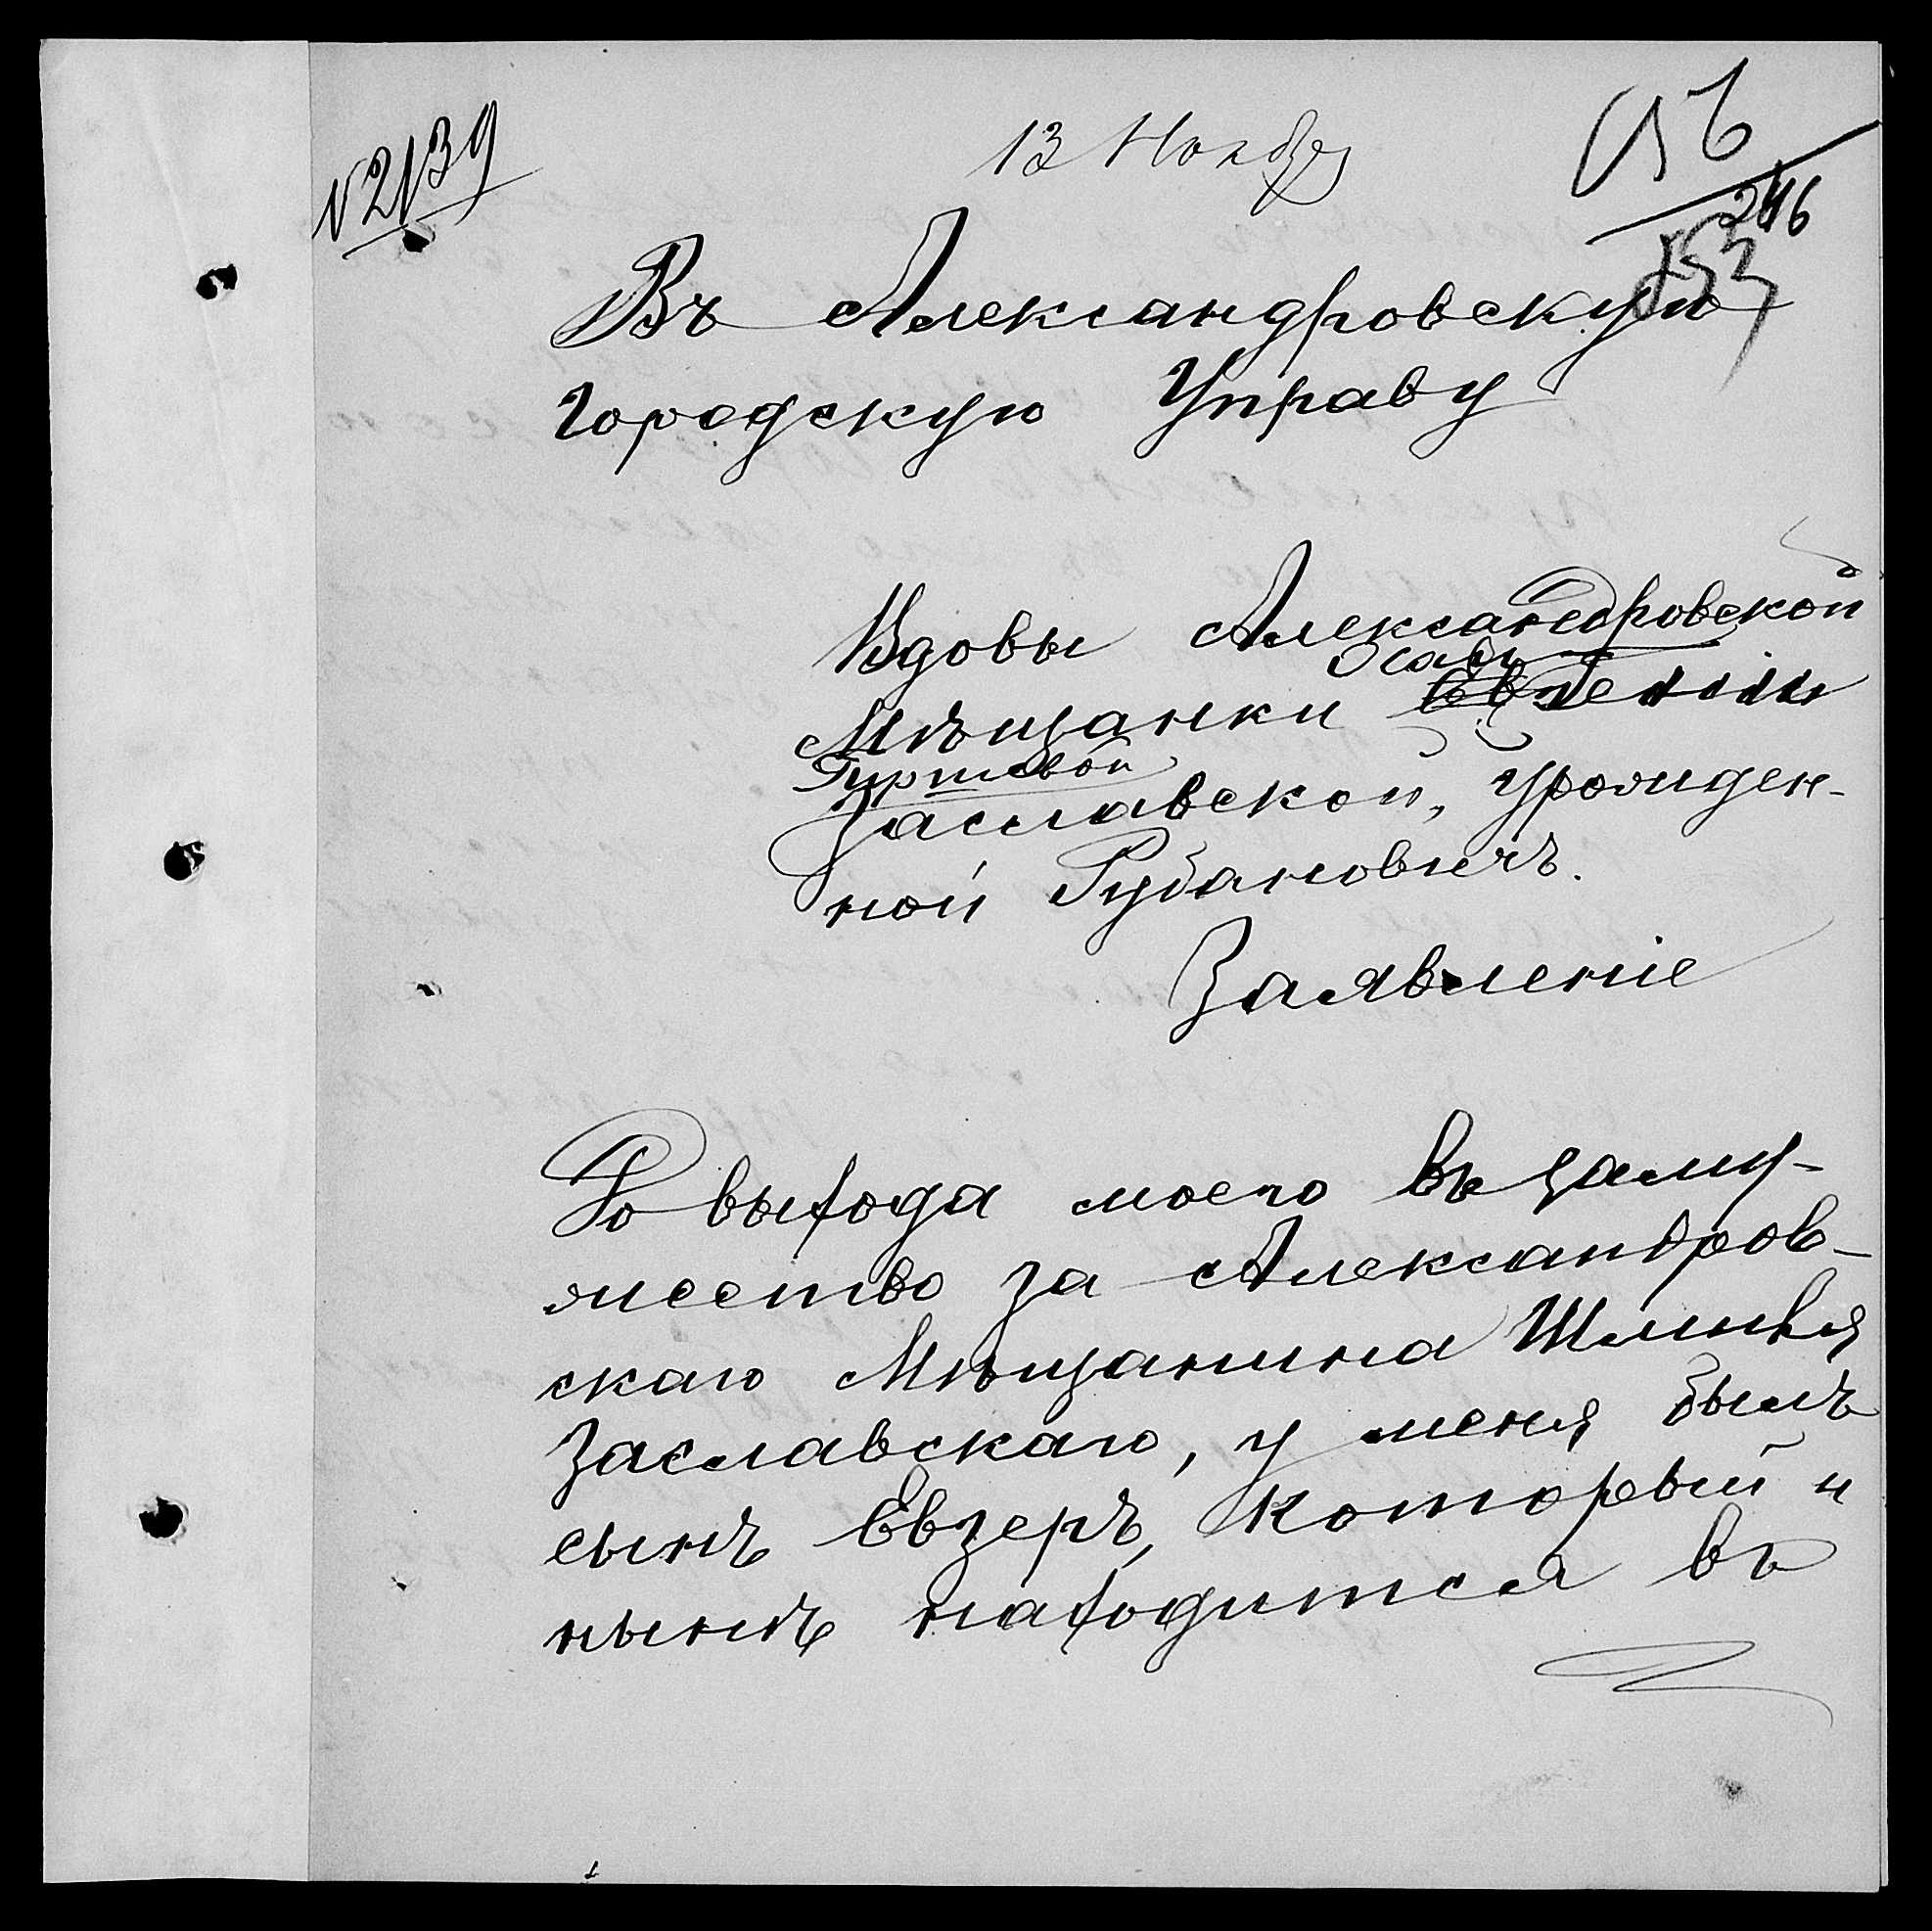 N 2139
13 Ноября
246
Въ Александровскую
городскую Управу
Вдовы Александровской
Мѣщанки
Заславской, урожден-
ной Рубановичъ.
Заявленіе
До выхода моего въ заму-
жество за Александров-
скаго Мѣщанина
Заславскаго, у меня былъ
сынъ Евзеръ, который и
нынѣ находится въ